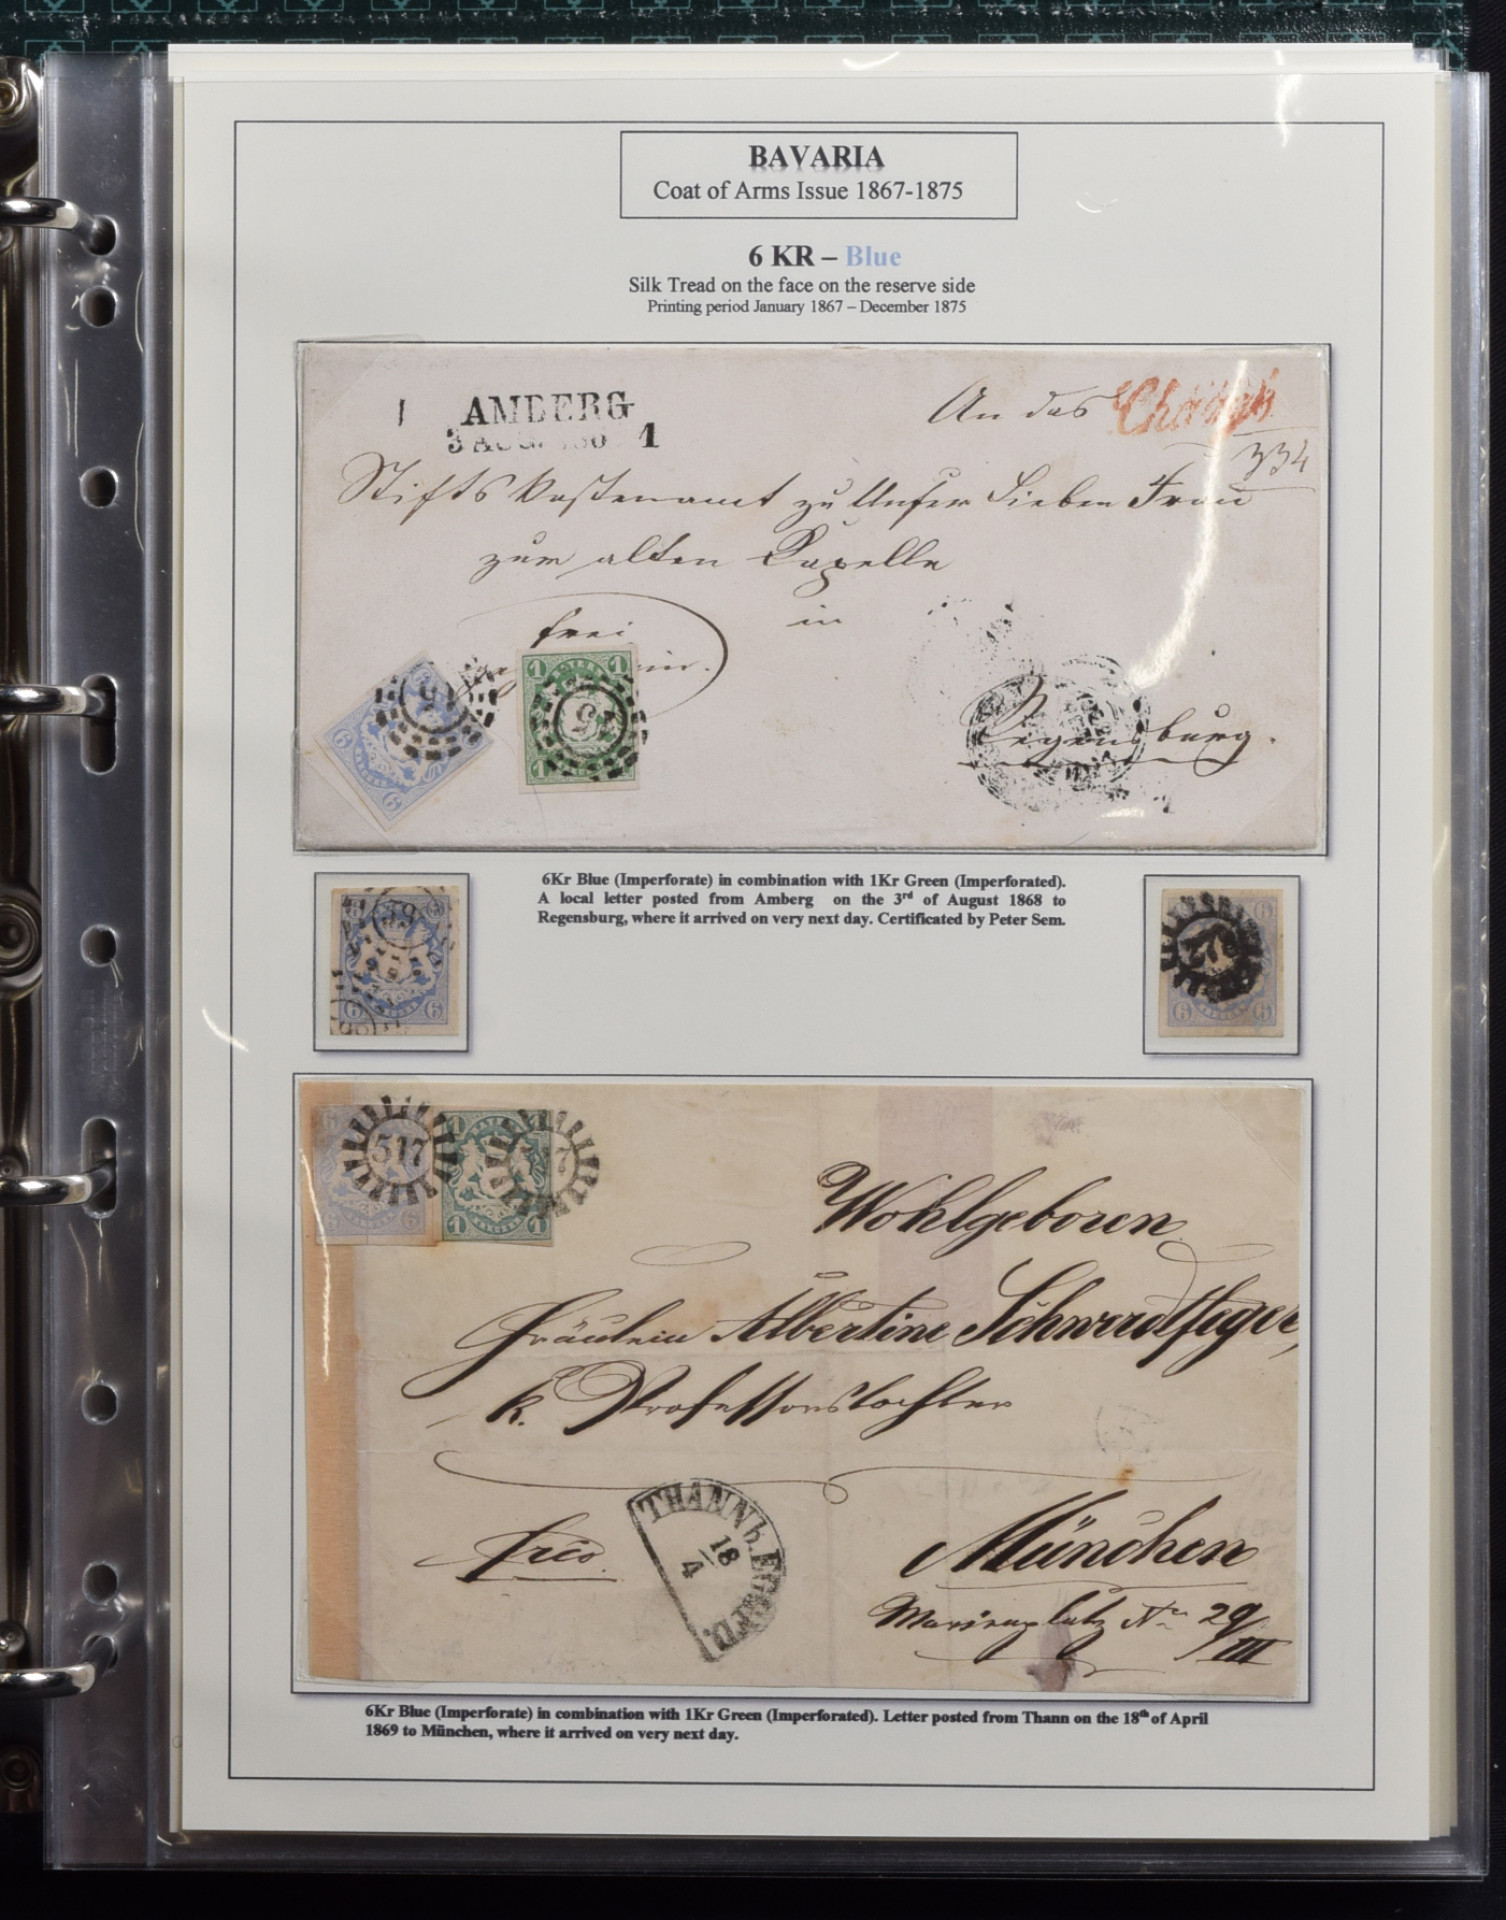 BAVARIA
Coat of Arms Issue 1867-1875
6 KR – Blue
Silk Tread on the face on the reserve side
Printing period January 1867 – December 1875
AMBERG
3 AUG. 1
An das
334
Stifts Kastenamt zu Unser Lieben Frau
zur alten Kapelle
in
frei
Regensburg.
6
6
1 1
5
1
6Kr Blue (Imperforate) in combination with 1Kr Green (Imperforated).
A local letter posted from Amberg on the 3rd of August 1868 to
Regensburg, where it arrived on very next day. Certificated by Peter Sem.
6 6
6 6
6
6 6
517
6
1 1
1 1
Wohlgeboren
Fräulein Albertine
k. Professorstochter
frco.
THANN b. EGGFD.
18
4
München
Marienplatz No 29/III
6Kr Blue (Imperforate) in combination with 1Kr Green (Imperforated). Letter posted from Thann on the 18th of April
1869 to München, where it arrived on very next day.